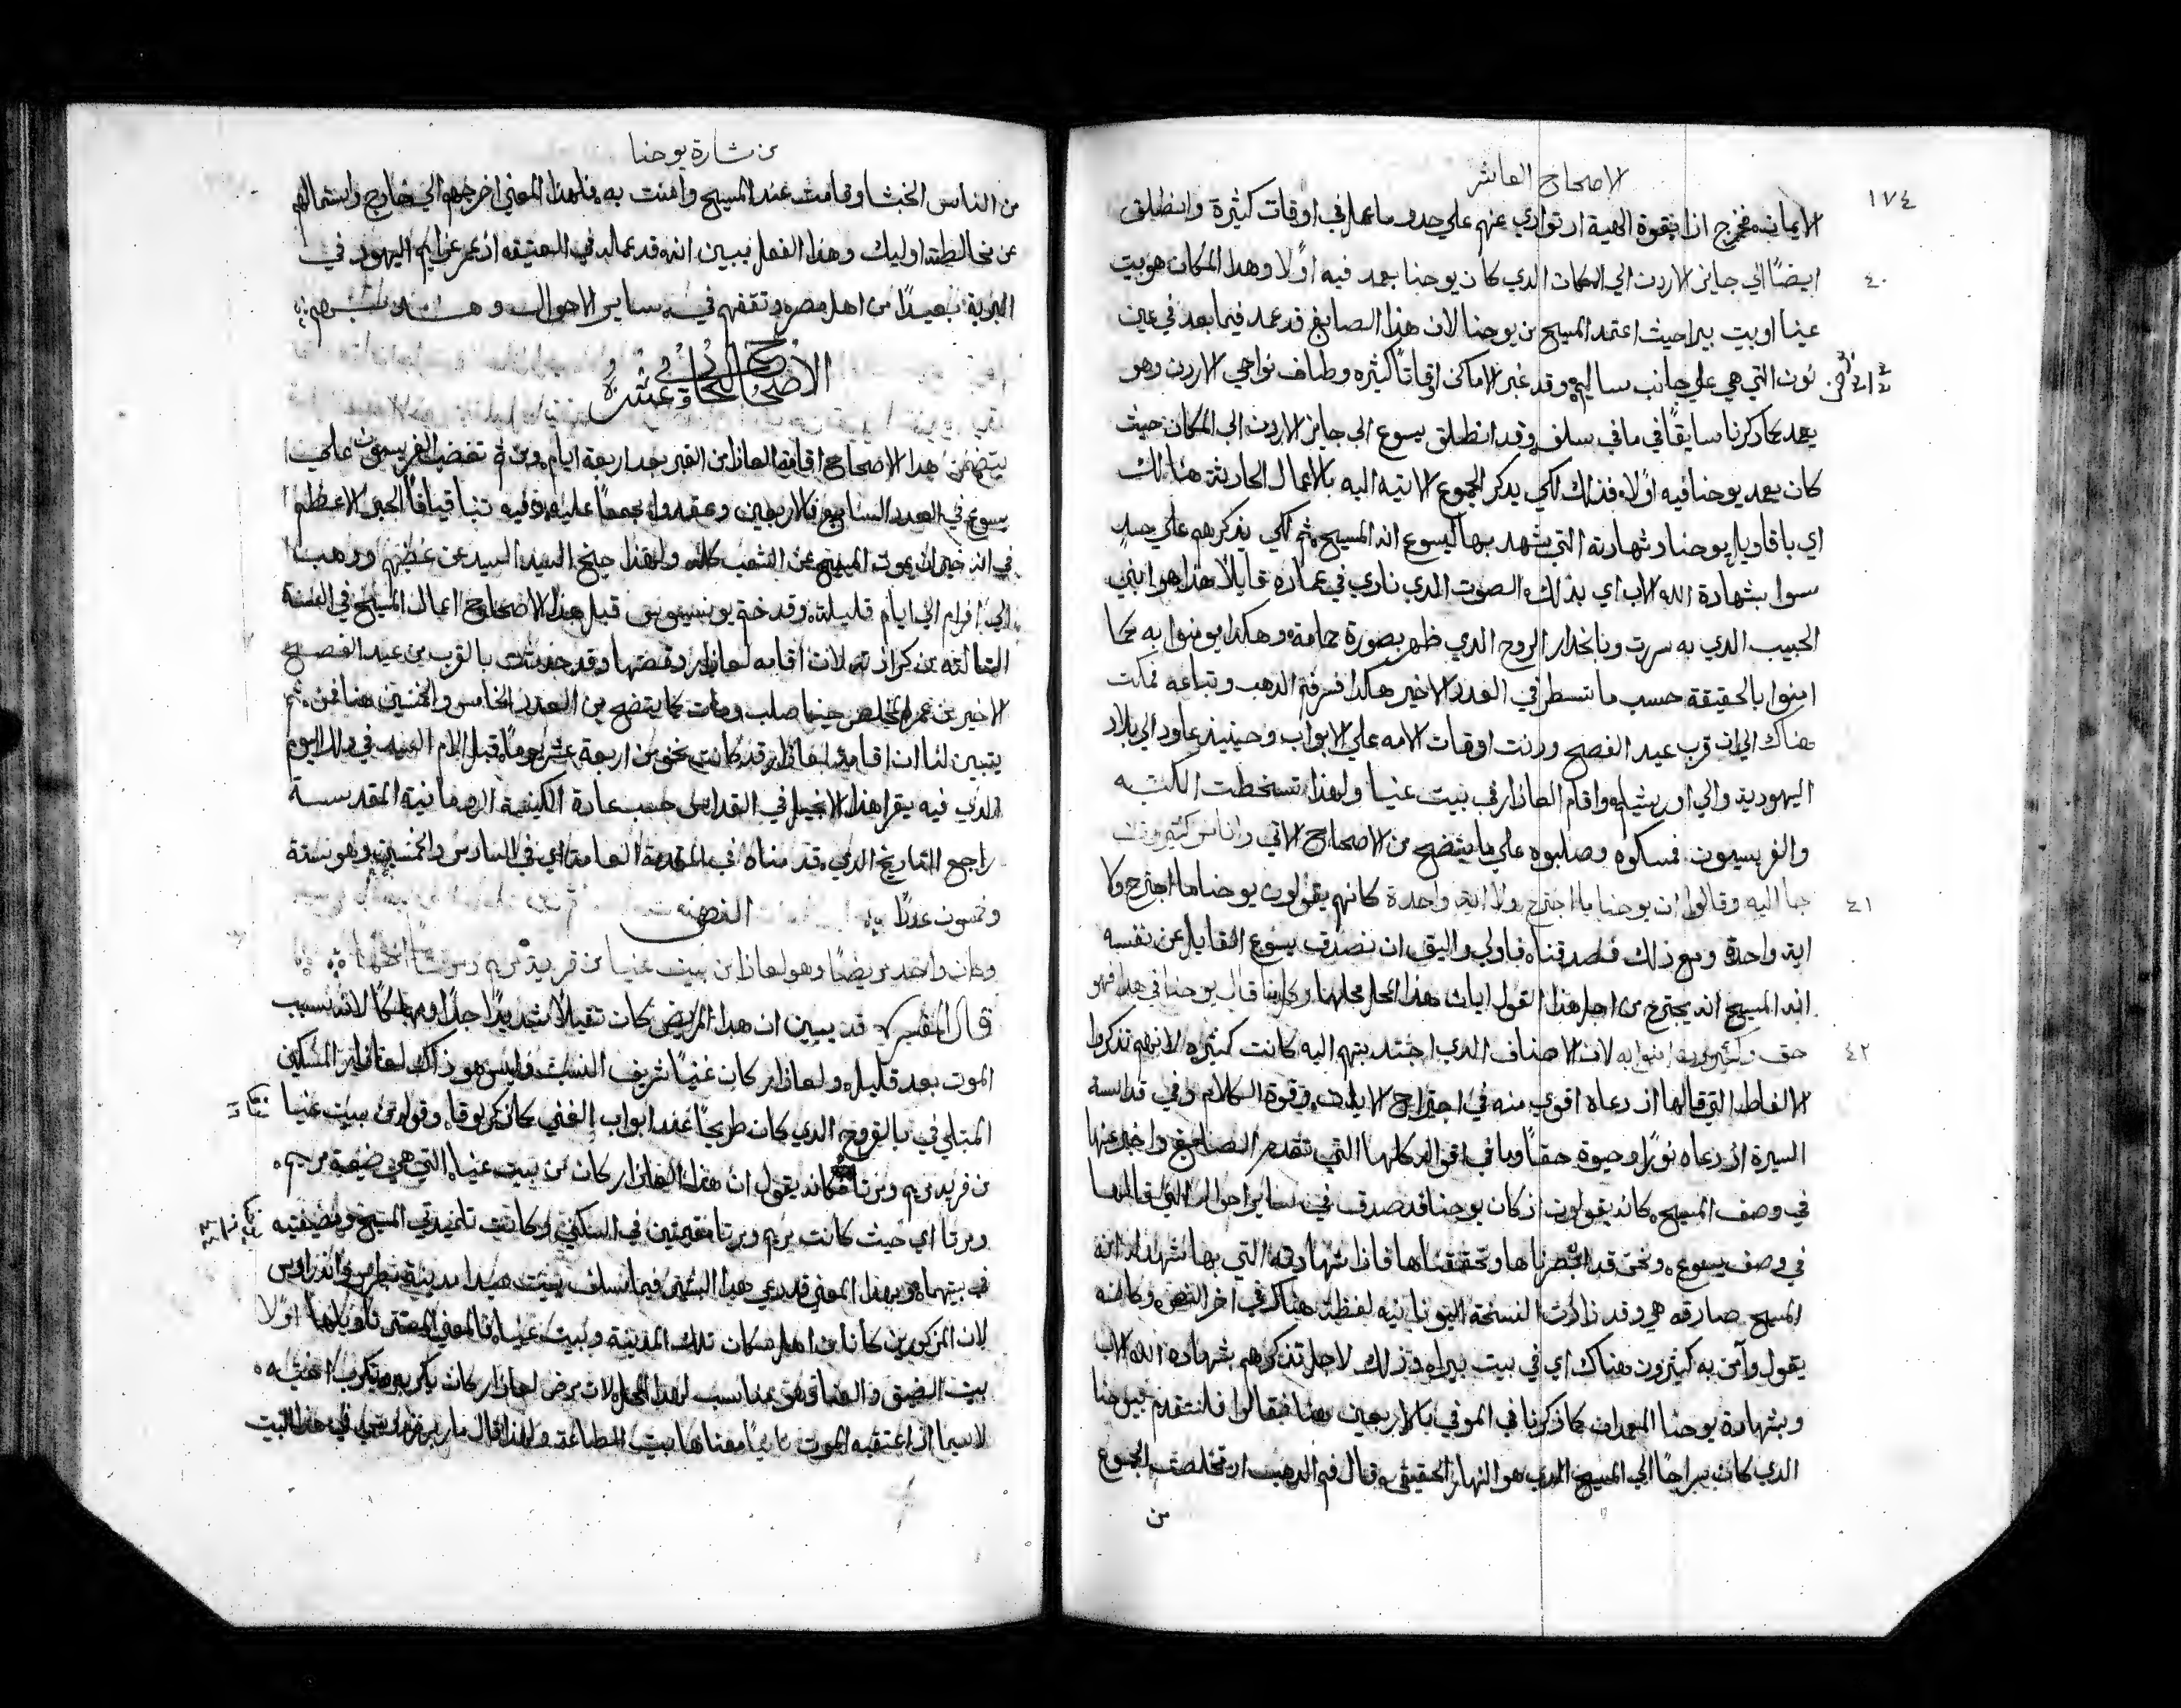 الاصحاح العاشر
١٧٤
الايمان فخرج اذا بقوة الهية اذ توارى عنهم علي حدو ما عمل في اوقات كثيرة وانطلق
٤٠
ايضًا الي جايز الاردن الي المكان الدي كان يوحنا يعمد فيه اولًا وهدا المكان هو بيت
عنيا او بيت بيرا حيث اعتمد المسيح من يوحنا لان هذا الصابغ قد عمد فيما بعد في عين
نون التي هي علي جانب ساليم وقد غير الاماكن اوقاتًا كثيره وطاف نواحي الاردن وهو
يعمد كما ذكرنا سابقًا في ما في سلف وقد انطلق يسوع الي جايز الاردن الي المكان حيث
كان يعمد يوحنا فيه اولًا فذلك لكي يذكر الجموع الاتيه اليه بالاعمال الحادثة هنالك
اي باقاويل يوحنا وشهادته التي شهد بها ليسوع انه المسيح ثم لكي يذكرهم علي حد
سوا بشهادة الله الاب اي بذلك الصوت الدي نادي في عماده قايلًا هذا هو ابني
الحبيب الدي به سررت وبانحدار الروح الدي ظهر بصورة حمامة وهكدا يومنوا به كما
امنوا بالحقيقة حسب ما تسطر في العدد الاخير هكدا فسر فم الدهب وتباعه فمكث
هناك الي ان قرب عيد الفصح ودنت اوقات الامه علي الابواب وحينيذ عاود الي بلاد
اليهودية والي اورشليم واقام العاذار في بيت عنيا ولهذا تسخطت الكتبه
والفريسيون فمسكوه وصلبوه علي ما يتضح من الاصحاح الاتي واناس كثيرون
٤١
جا اليه وقالوا ان يوحنا ما اجترح ولا اية واحدة كانهم يقولون يوحنا ما اجترح ولا
اية واحدة ومع ذلك فصدقناه فاولي واليق ان نصدق يسوع القايل عن نفسه
انه المسيح انه يجترح من اجل هذا القول ايات هذا المحل محلها وكلما قال يوحنا في هذا فهو
٤٢
حق وكثيرون امنوا به لان الاصناف الدي اجتدبتهم اليه كانت كثيره لانهم تذكروا
الالفاظ التي قالها اذ دعاه اقوي منه في اجتراح الايات وقوة الكلام وفي قداسة
السيرة اذ دعاه نورًا وحيوة حقًا وباقي اقواله كلها التي تقدم الصابغ واخبر عنها
في وصف المسيح كانه يقولون اذ كان يوحنا قد صدق في ساير احواله التي قالها
في وصف يسوع ونحن قد ابصرناها وتحققناها فاذا شهادته التي بها شهد انه
المسيح صادقه هي وقد زادت النسخة اليونانيه لفظة هناك في اخر النص وكانه
يقول وآمن به كثيرون هناك اي في بيت بيرا وذلك لاجل تذكرهم بشهادة الله الاب
وبشهادة يوحنا المعمدان كما ذكرنا في الموفي بالاربعين هنا فقالوا فلنتقدم بيوحنا
الدي كان سراجًا الي المسيح الدي هو النهار الحقيقي وقال فم الدهب اذ تخلصت الجموع
من
من بشارة يوحنا
من الناس الخبثا وقامت عند المسيح وامنت به فلهذا المعني اخرجهم الي خارج واستمالهم
من مخالطة اوليك وهذا الفعل يبين انه قد عمله في العتيقه اذ عمر عزايم اليهود في
البرية بعيدًا من اهل مصر وتقفهم في ساير الاحوال وهدبهم
الاصحاح الحادي عشر
يتضمن هدا الاصحاح اقامة العاذار من القبر بعد اربعة ايام ومن ثم تغضب الفريسيون علي
يسوع في العدد السابع والاربعين وعقدوا مجمعًا عليه وفيه تنبا قيافا الحبر الاعظم
في انه خير ان يموت المسيح عن الشعب كله ولهذا جنح السيد عن غيظهم وذهب
الي افرام الي ايام قليلة وقد ختم يونسينوس قبل هذا الاصحاح اعمال المسيح في السنة
الثالثه من كرازته لان اقامه لعاذار وقضتها وقد حدثت بالقرب من عيد الفصح
الاخير من عمر المخلص حينما صلب ومات كما يتضح من العدد الخامس والخمسين هنا فمن ثم
يتبين لنا ان اقامة لعاذار قد كانت نحو من اربعة عشر يومًا قبل الام السيد في ذلك اليوم
الدي فيه يقرا هذا الانجيل في القداس حسب عادة الكنيسة الرومانية المقدسة
راجع التاريخ الدي قدمناه في المقدمة العامة اي في السادس والخمسين وهو ستة
وخمسون عددًا النص
وكان واحد مريضًا وهو لعاذا من بيت عنيا من قرية مريم ومرتا اختها
قال المفسر قد يبين ان هدا المريض كان ثقيلًا شديدًا جدًا ومهلكًا لانه سبب
الموت بعد قليل ولعاذار كان غنيًا شريف النسب وليس هو ذاك لعاذار المسكين
المبتلي بالقروح الدي كان طريحًا عند ابواب الغني كما ذكر لوقا وقوله من بيت عنيا
من قرية مريم ومرتا فكانه يقول ان هذا العاذار كان من بيت عنيا التي هي ضيعة مريم
ومرتا اي حيث كانت مريم ومرتا مقيمتين في السكني وكانت تلميذتي المسيح ومضيفتيه
في بيتهما وبهذا المعني قد دعي هدا البشير فيما سلف بيت صيدا مدينة بطرس واندراوس
لان المذكورين كانا من اهل سكان تلك المدينة وبيت عنيا فالمعني تاويلها اولًا
بيت الضيق والعنا وهو مناسب لهذا المحل لان مرض لعاذار كان يكربه ويكرب اختيه
لاسيما اذ اعتقبه الموت ثانيًا معناها بيت الطاعة ولهذا قال مار في هذا البيت